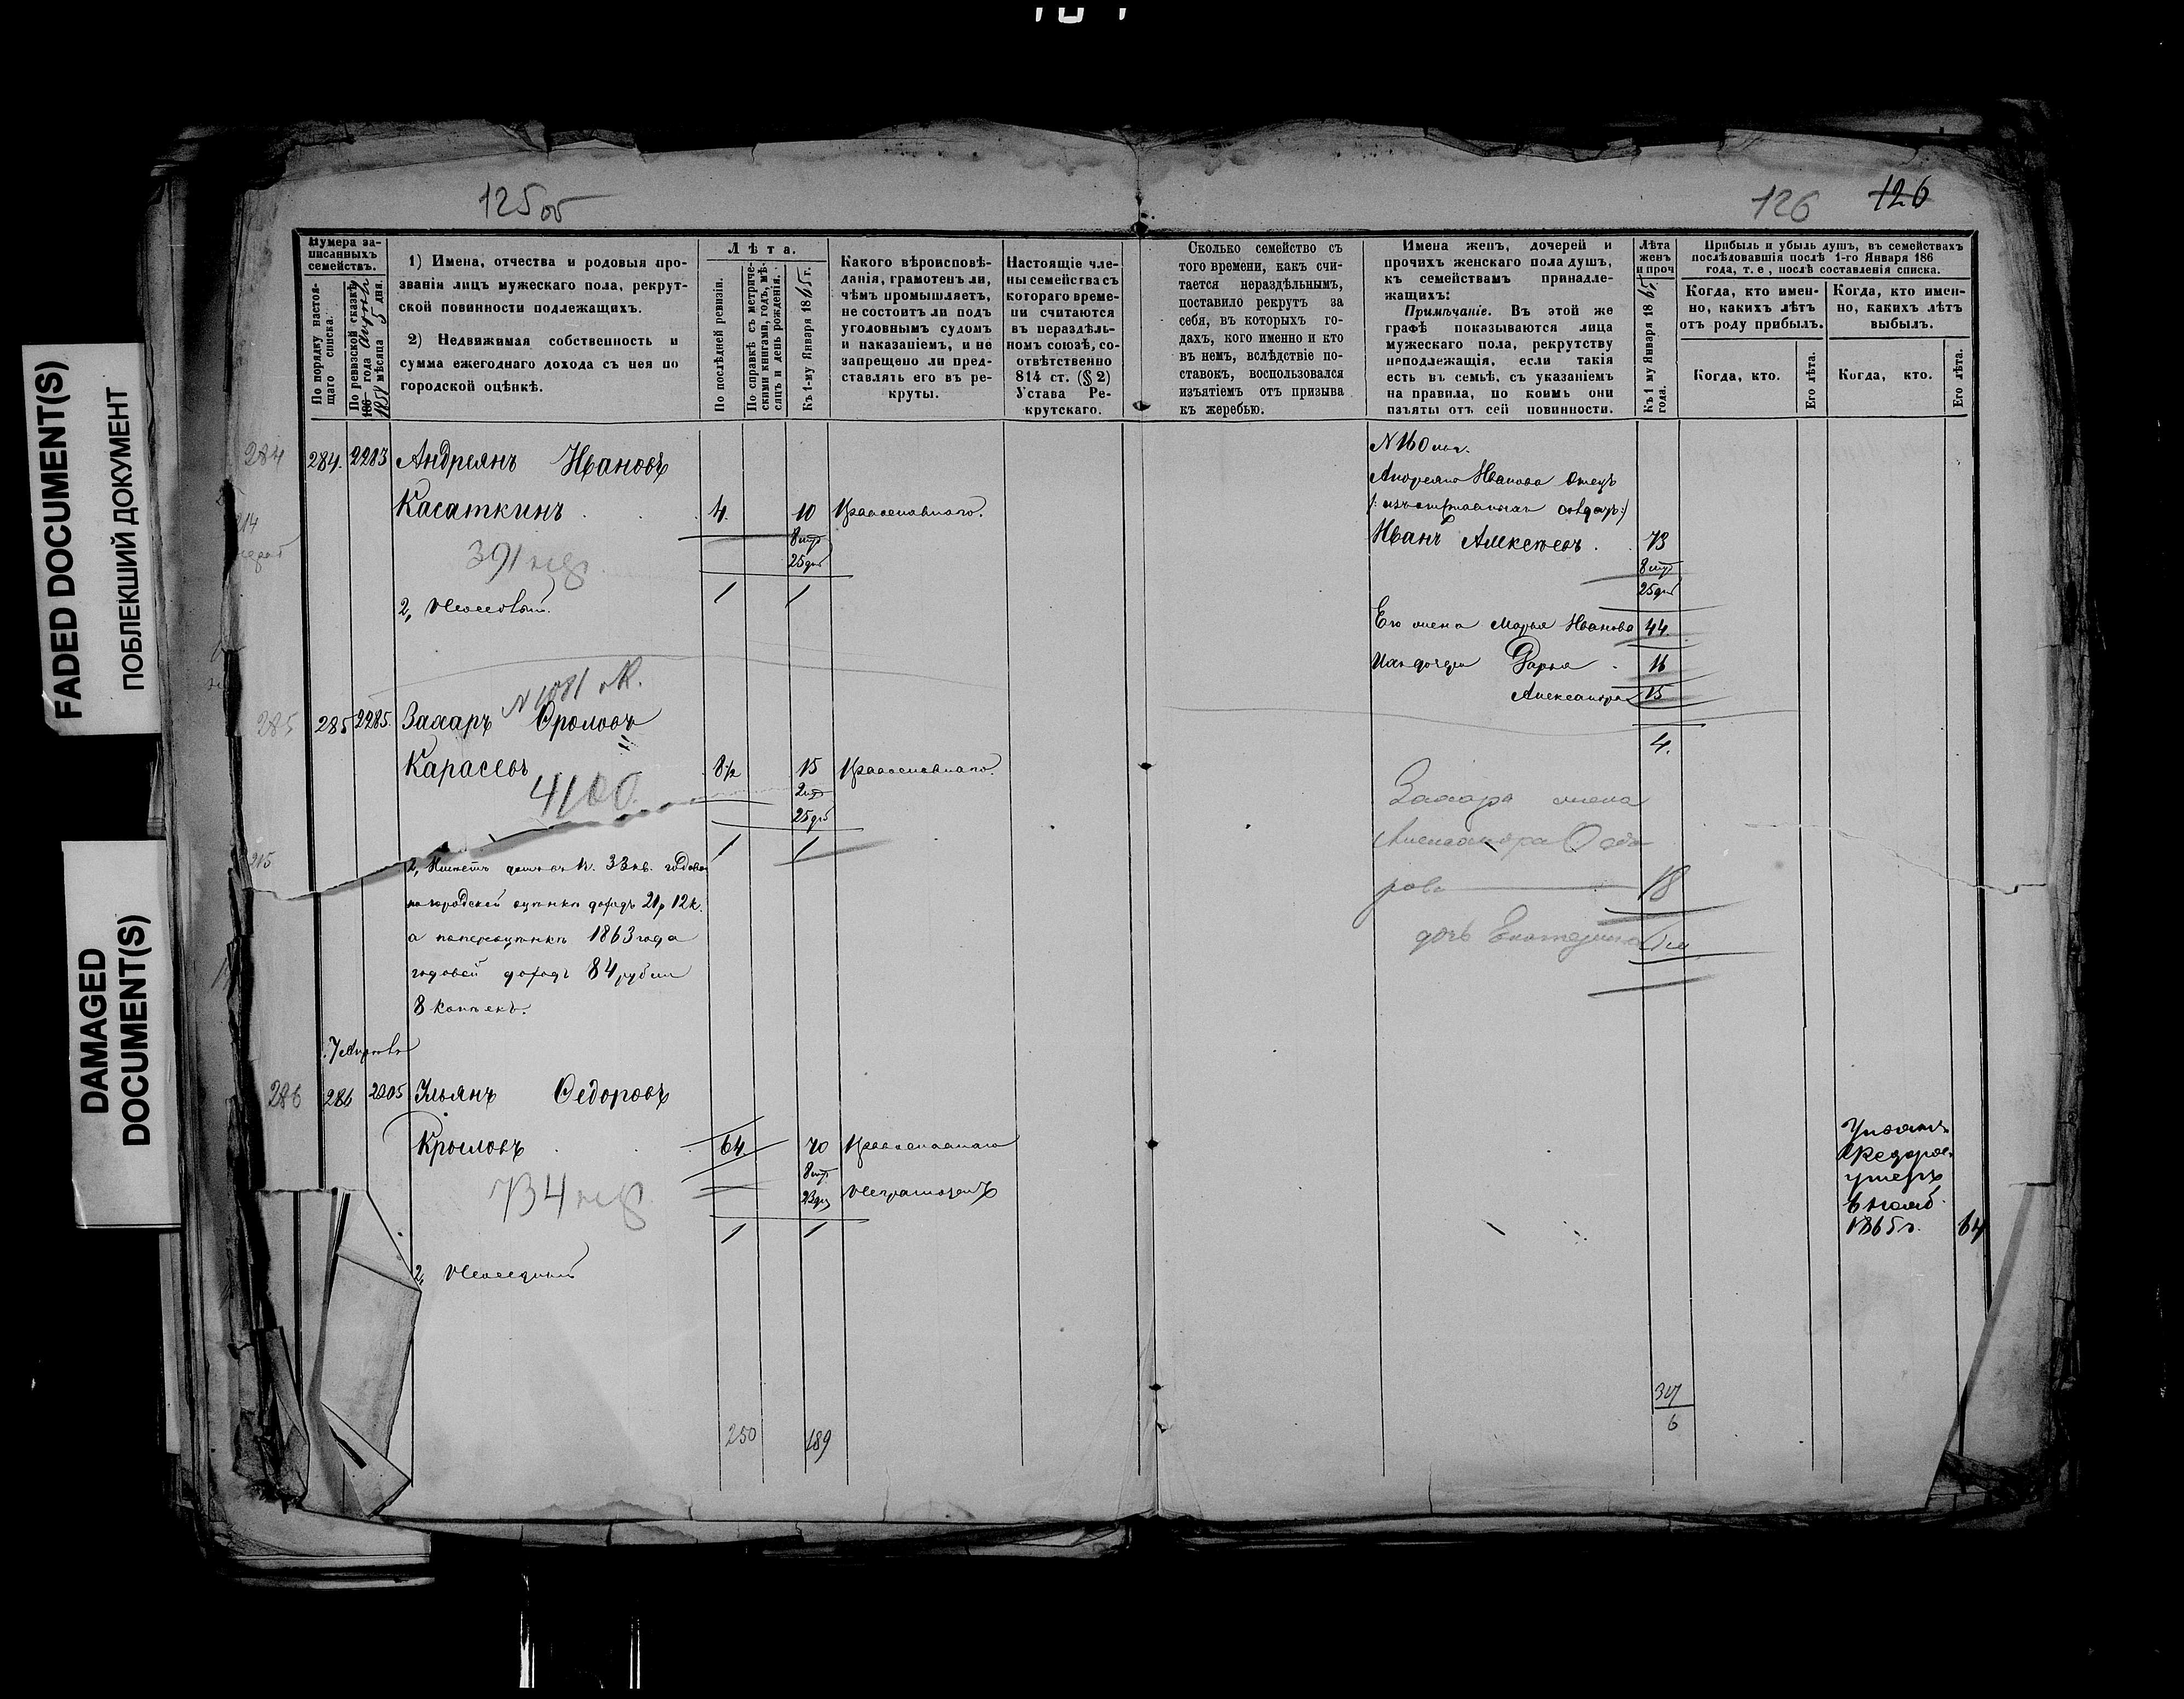 FADED DOCUMENT(S)
ПОБЛЕКШИЙ ДОКУМЕНТ
DAMAGED
DOCUMENT(S)
125 об
126 126
Нумера за-
писанныхъ
семействъ.
По порядку настоя-
щаго списка.
По ревизской сказкѣ
186 года
1858 мѣсяца 5 дня.
1) Имена, отчества и родовыя про-
званія лицъ мужескаго пола, рекрут-
ской повинности подлежащихъ.
2) Недвижимая собственность и
сумма ежегоднаго дохода съ нея по
городской оцѣнкѣ.
Лѣта.
По послѣдней ревизіи.
По справкѣ съ метриче-
скими книгами, годъ, мѣ-
сяцъ и день рожденія.
Къ 1-му Января 1865 г.
Какого вѣроисповѣ-
данія, грамотенъ ли,
чѣмъ промышляетъ,
не состоитъ ли подъ
уголовнымъ судомъ
и наказаніемъ, и не
запрещено ли пред-
ставлять его въ ре-
круты.
Настоящіе чле-
ны семейства съ
котораго време-
ни считаются
въ нераздѣль-
номъ союзѣ, со-
отвѣтственно
814 ст. (§ 2)
Устава Ре-
крутскаго.
Сколько семейство съ
того времени, какъ счи-
тается нераздѣльнымъ,
поставило рекрутъ за
себя, въ которыхъ го-
дахъ, кого именно и кто
въ немъ, вслѣдствіе по-
ставокъ, воспользовался
изъятіемъ отъ призыва
къ жеребью.
Имена женъ, дочерей и
прочихъ женскаго пола душъ,
къ семействамъ принадле-
жащихъ:
Примѣчаніе. Въ этой же
графѣ показываются лица
мужескаго пола, рекрутству
неподлежащія, если такія
есть въ семьѣ, съ указаніемъ
на правила, по коимъ они
изъяты отъ сей повинности.
Лѣта
женъ
и проч
Къ 1 му Января 1865
года.
Прибыль и убыль душъ, въ семействахъ
послѣдовавшія послѣ 1-го Января 186
года, т. е, послѣ составленія списка.
Когда, кто имен-
но, какихъ лѣтъ
отъ роду прибылъ.
Когда, кто имен-
но, какихъ лѣтъ
выбылъ.
Когда, кто.
Его лѣта.
Когда, кто.
Его лѣта.
284 284. 2283 Андреянъ Ивановъ
Касаткинъ 4. 10 Православнаго.
25
391
2,
1 1
Андреяна Иванова Отецъ
Иванъ Алексѣевъ 73
25
Его жена Марья Иванова 44
Дарья 16
Александра 15
4.
N 1081
285 285 2285. Захаръ Фроловъ
Карасевъ 8½ 15 Православнаго.
25
4100
1 1
2, Имѣетъ домъ въ 1 ч. 33 кв. годовой
по городской оцѣнкѣ доходъ 21 р 12 к.
а по переоцѣнкѣ 1863 года
годовой доходъ 84 рубли
8 копѣекъ.
Захара жена
Александра Федо
рова 18
дочь Екатерина
286 286 2305 Ульянъ Федоровъ
Крыловъ 64. 70 Православнаго
Неграмотенъ
734
1 1
2,
Ульянъ
Федоров.
умеръ
1865 г. 64
250 189
6